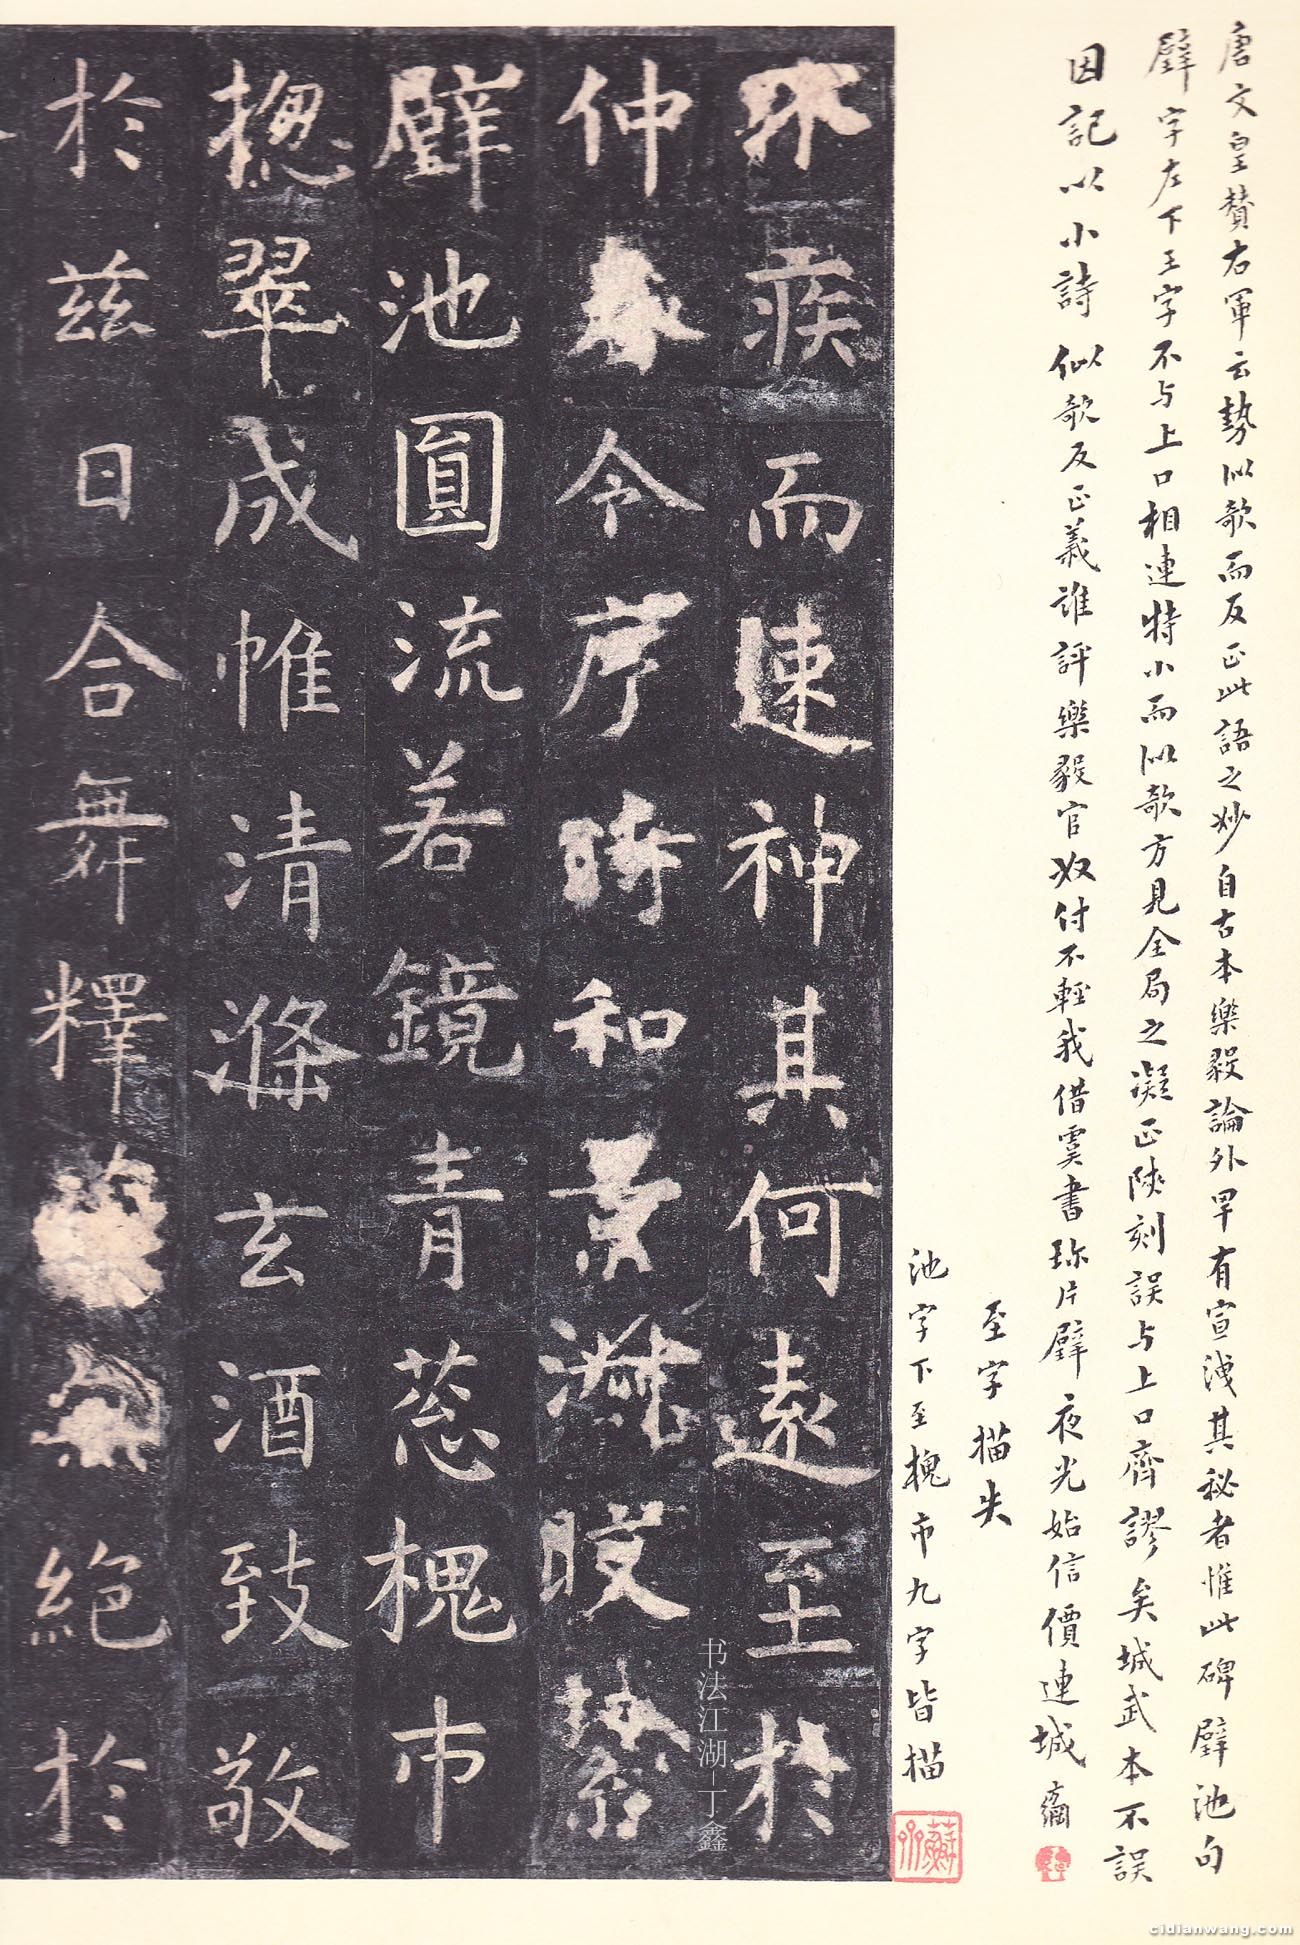 唐文皇贊右軍云勢似欹而反正此語之妙自古本樂毅論外罕有宣洩其秘者惟此碑壁池句
壁字左下王字不与上口相連特小而似欹方見全局之凝正陝刻誤与上口齊謬矣城武本不誤
因記以小詩 似欹反正義誰評樂毅官奴付不輕我借虞書珎片壁夜光始信價連城 綱
至字描失
池字下至槐市九字皆描
不疾而速神其何遠至於
仲春令序時和景淑暎
璧池圓流若鏡青葱槐市
揔翠成帷清滌玄酒致敬
於兹日合舞釋絶於
书法江湖-丁鑫
cidianwang.com